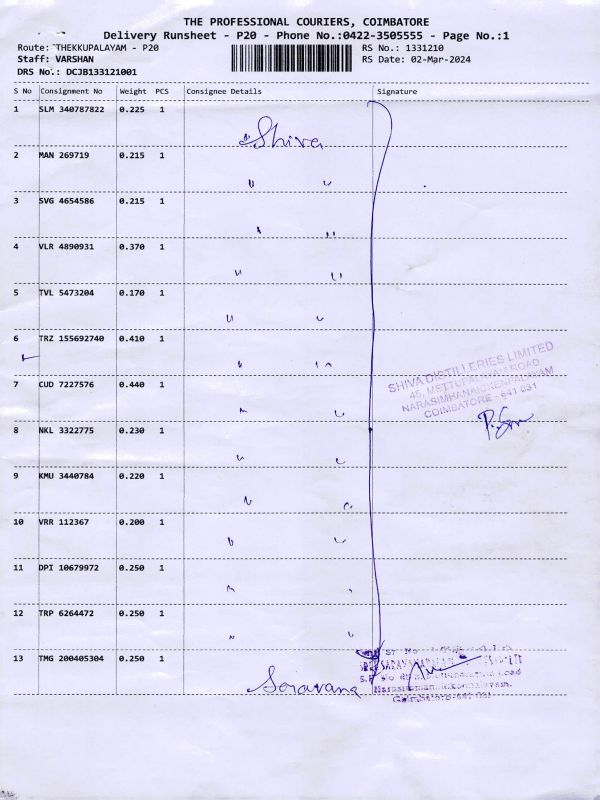 THE PROFESSIONAL COURIERS, COIMBATORE
Delivery Runsheet - P20 - Phone No.:0422-3505555 - Page No.:1
Route: THEKKUPALAYAM - P20
RS No.: 1331210
Staff: VARSHAN
RS Date: 02-Mar-2024
DRS No.: DCJB133121001
S No Consignment No Weight PCS Consignee Details Signature
1 SLM 340787822 0.225 1
Shiva
2 MAN 269719 0.215 1
3 SVG 4654586 0.215 1
4 VLR 4890931 0.370 1
5 TVL 5473204 0.170 1
6 TRZ 155692740 0.410 1
7 CUD 7227576 0.440 1
SHIVA DISTILLERIES LIMITED
45, METTUPALAYAM ROAD
NARASIMHANAICKENPALAYAM
COIMBATORE - 641 031
8 NKL 3322775 0.230 1
9 KMU 3440784 0.220 1
10 VRR 112367 0.200 1
11 DPI 10679972 0.250 1
12 TRP 6264472 0.250 1
13 TMG 200405304 0.250 1
Saravana